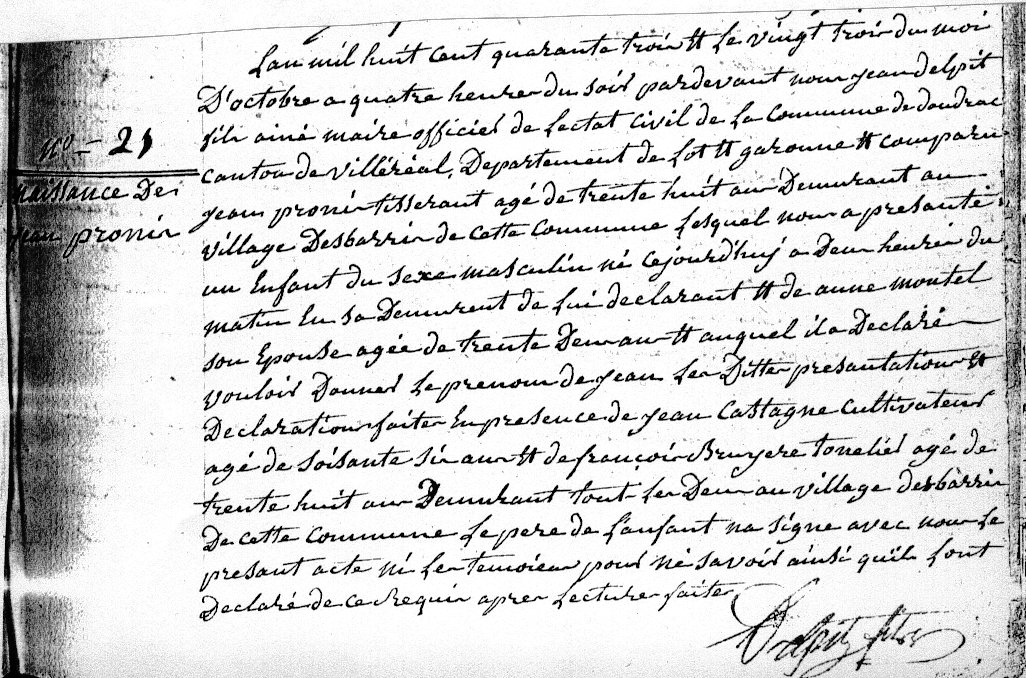 Lan mil huit cent quarante trois et le vingt trois du mois
D'octobre a quatre heures du soir pardevant nous jean delpit
fils ainé maire officier de lectat civil de la Commune de doudrac
canton de villéréal, Departement de lot et garonne et comparu
N° 21
Naissance De
jean pronis
jean pronis tisserant agé de trente huit ans Demurant au
village Desbarris de cette Commune lesquel nous a presanté
un Enfant du sexe masculin né cejourd'huy a Deux heures du
matin En sa Demurent de lui declarant et de anne montel
son Epouse agée de trente Deux ans et auquel il a Declaré
vouloir Donner le prenom de jean les Dittes presantations et
Declaration faites En presence de jean Castagne Cultivateur
agé de soisante six ans et de françois Bruyere tonelier agé de
trente huit ans Demurant tout les Deux au village desbarris
De cette Commune le pere de l'anfant na signe avec nous le
presant acte ni les temoiens pour né savoir ainsi quils l'ont
Declaré de ce Requis apres lecture faites
Delpit fils